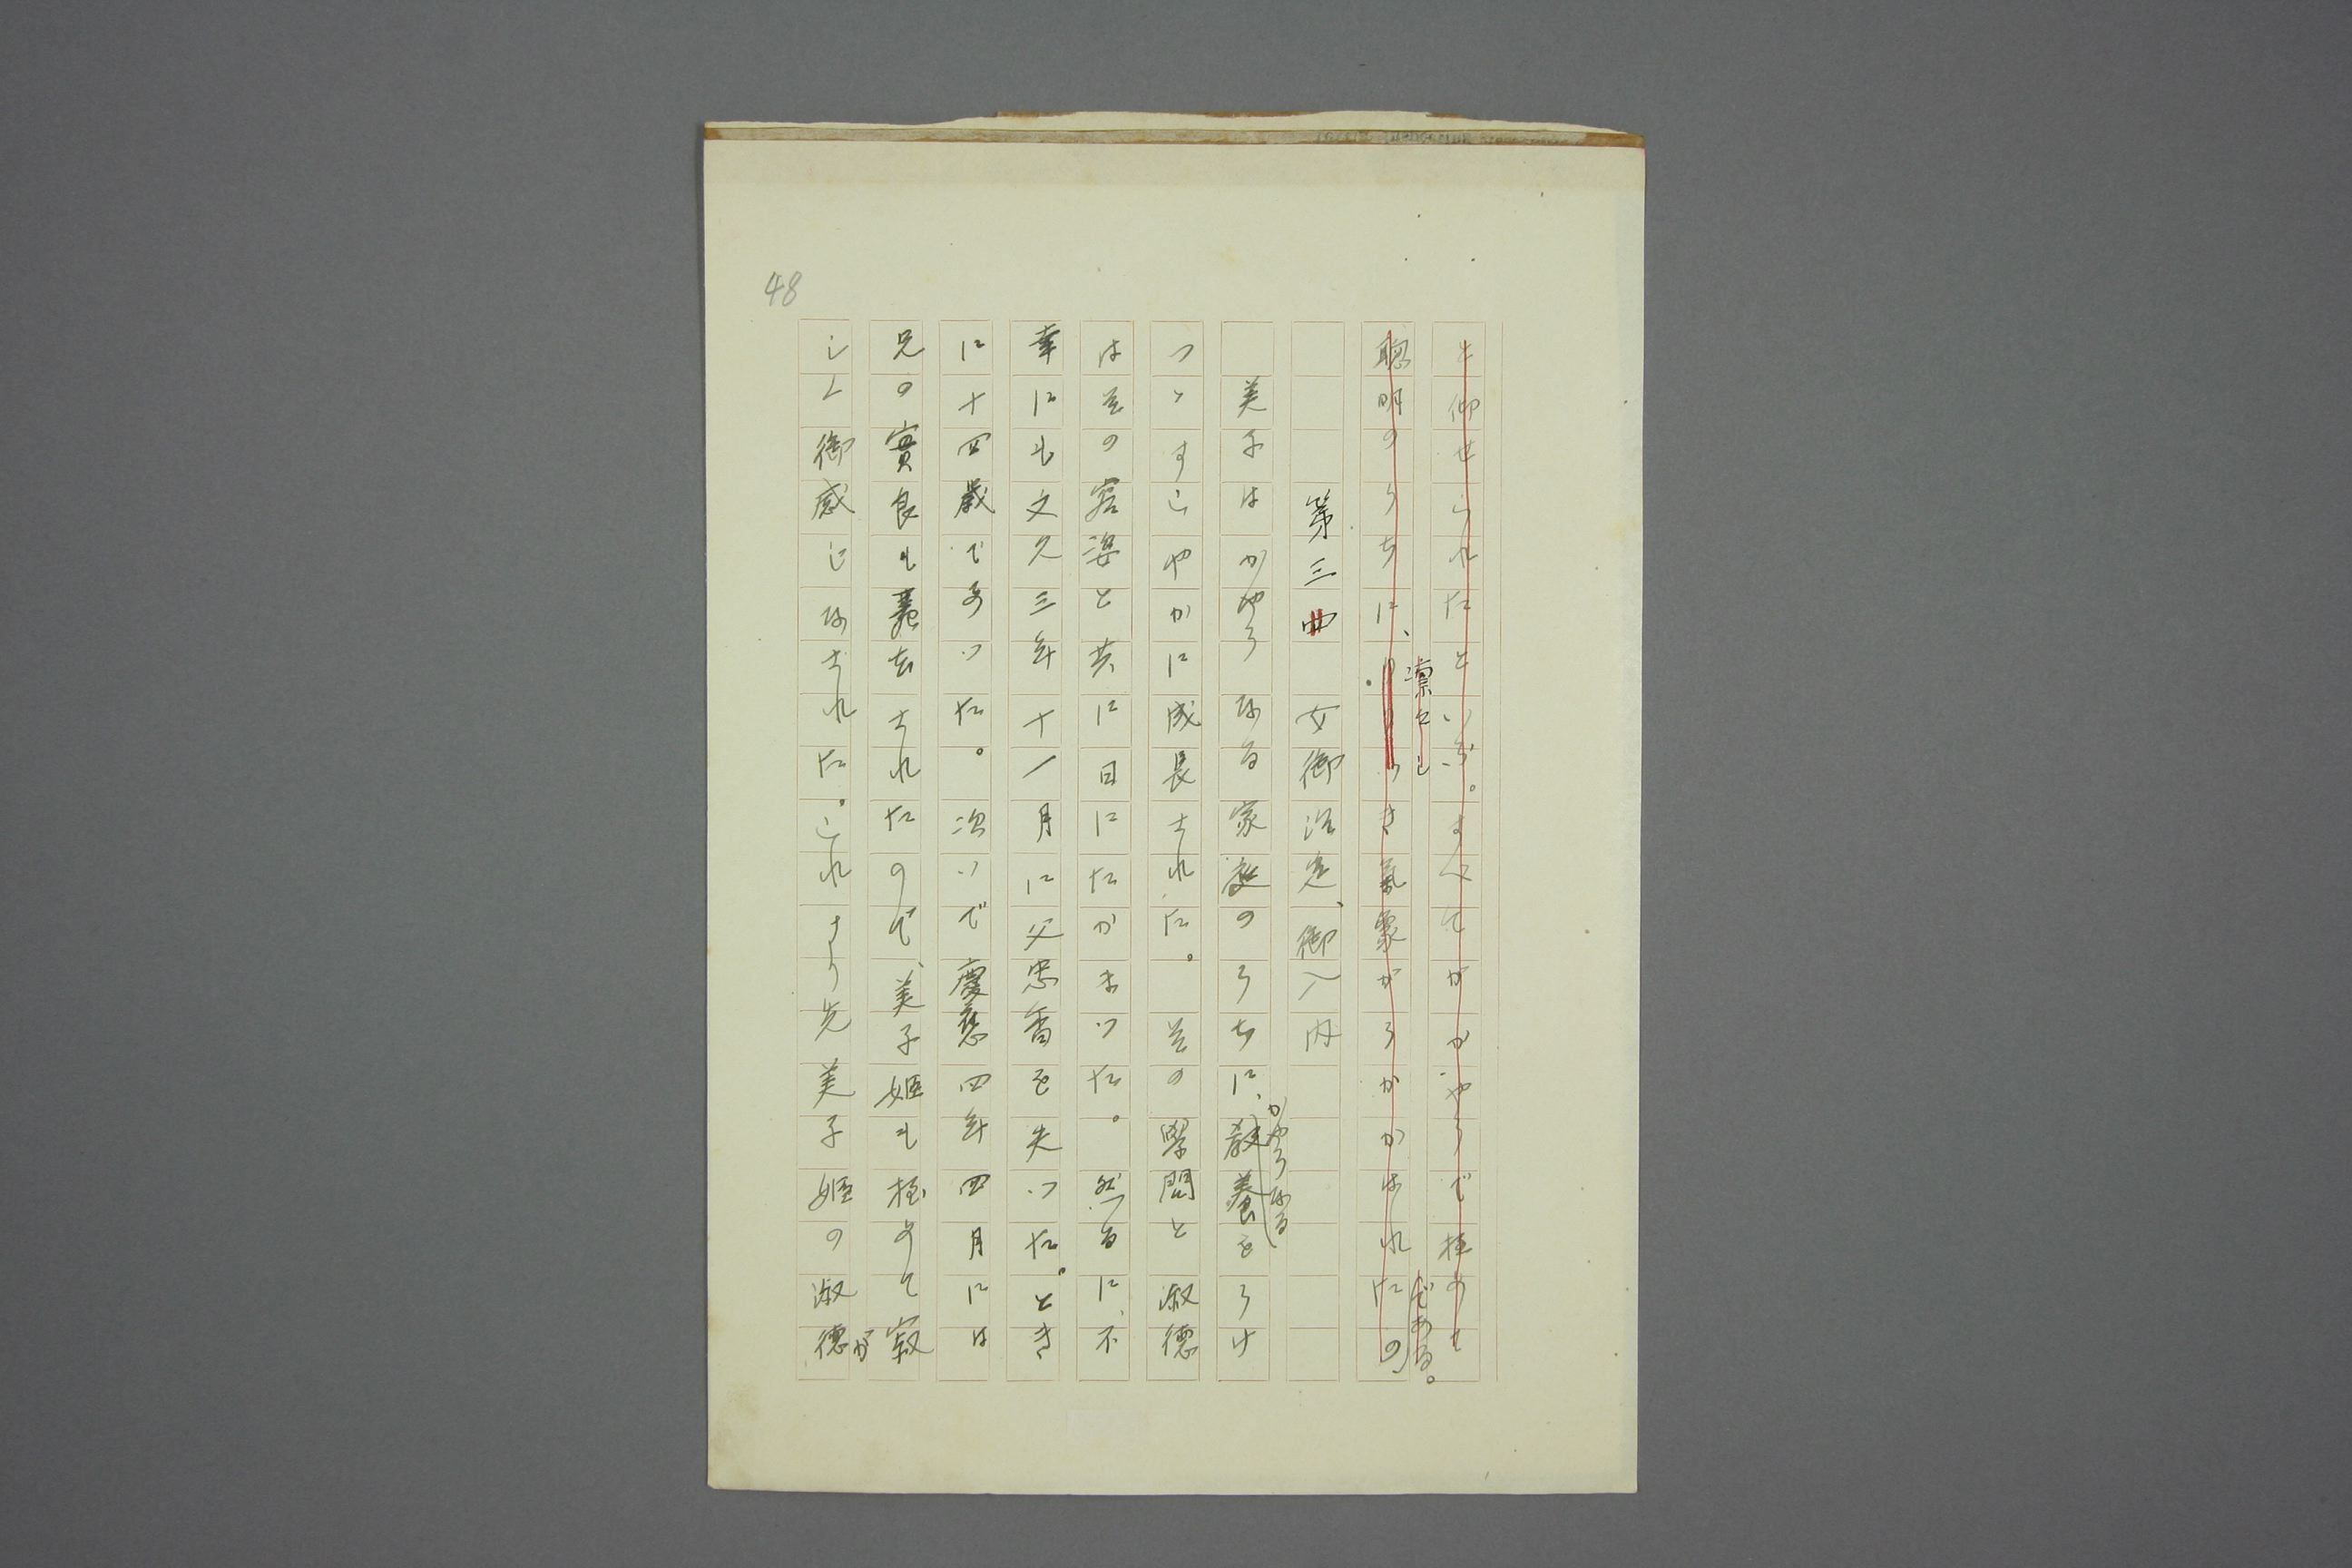 48
と仰せられたといふ。すべてがかやうで極めて
聰明のうちに、凛々しき氣象がうかがはれたのである。
第三曲　女御治定、御入内
美子はかやうなる家庭のうちに、かやうなる教養をうけ
つゝすこやかに成長された。其の學問と淑徳
は其の容姿と共に日にたかまつた。然るに、不
幸にも文久三年十一月に父忠香を失つた。とき
に十四歳であつた。次いで慶應四年四月には
兄の實良も薨去されたので、美子姫も極めて寂
しく御感じなされた。これより先美子姫の淑徳が